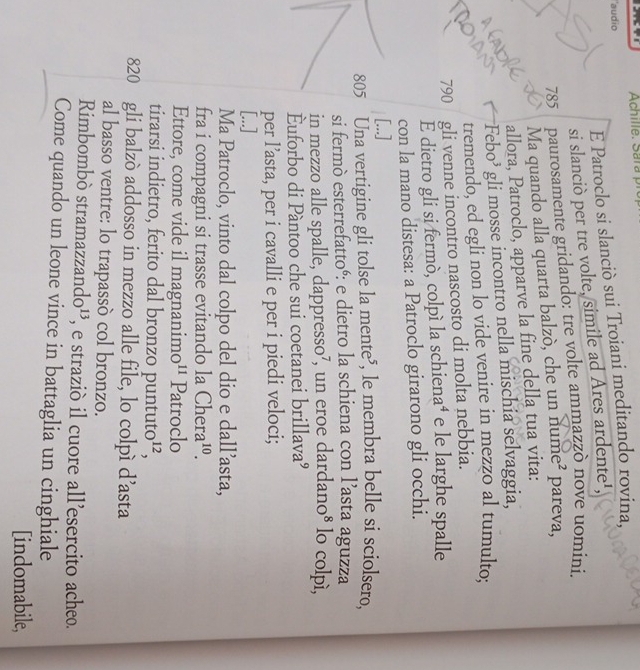 'audio
Achille. Sarà
E Patroclo si slanciò sui Troiani meditando rovina,
si slanciò per tre volte, simile ad Ares ardente¹,
785 paurosamente gridando: tre volte ammazzò nove uomini.
Ma quando alla quarta balzò, che un nume² pareva,
allora, Patroclo, apparve la fine della tua vita:
Febo³ gli mosse incontro nella mischia selvaggia,
tremendo, ed egli non lo vide venire in mezzo al tumulto;
790 gli venne incontro nascosto di molta nebbia.
E dietro gli si fermò, colpì la schiena⁴ e le larghe spalle
con la mano distesa: a Patroclo girarono gli occhi.
[...]
805 Una vertigine gli tolse la mente⁵, le membra belle si sciolsero,
si fermò esterrefatto⁶: e dietro la schiena con l'asta aguzza
in mezzo alle spalle, dappresso⁷, un eroe dardano⁸ lo colpì,
Èuforbo di Pàntoo che sui coetanei brillava⁹
per l'asta, per i cavalli e per i piedi veloci;
[...]
Ma Patroclo, vinto dal colpo del dio e dall'asta,
fra i compagni si trasse evitando la Chera¹⁰.
Ettore, come vide il magnanimo¹¹ Patroclo
tirarsi indietro, ferito dal bronzo puntuto¹²,
820 gli balzò addosso in mezzo alle file, lo colpì d'asta
al basso ventre: lo trapassò col bronzo.
Rimbombò stramazzando¹³, e straziò il cuore all'esercito acheo.
Come quando un leone vince in battaglia un cinghiale
[indomabile,
A FAVORE DEI
TROIANI